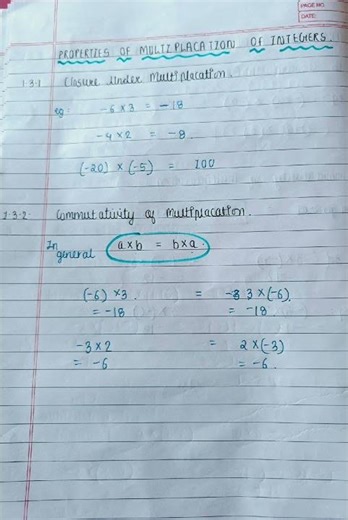 PAGE NO.
DATE:
PROPERTIES OF MULTIPLACATION OF INTEGERS.
1.3.1 Closure Under Multiplacation.
eg: -6 x 3 = -18
-4 x 2 = -8
(-20) x (-5) = 100
1.3.2. Commutativity of Multiplacation.
In general a x b = b x a.
(-6) x 3. = 3 x (-6)
= -18 = -18
-3 x 2 = 2 x (-3)
= -6 = -6.